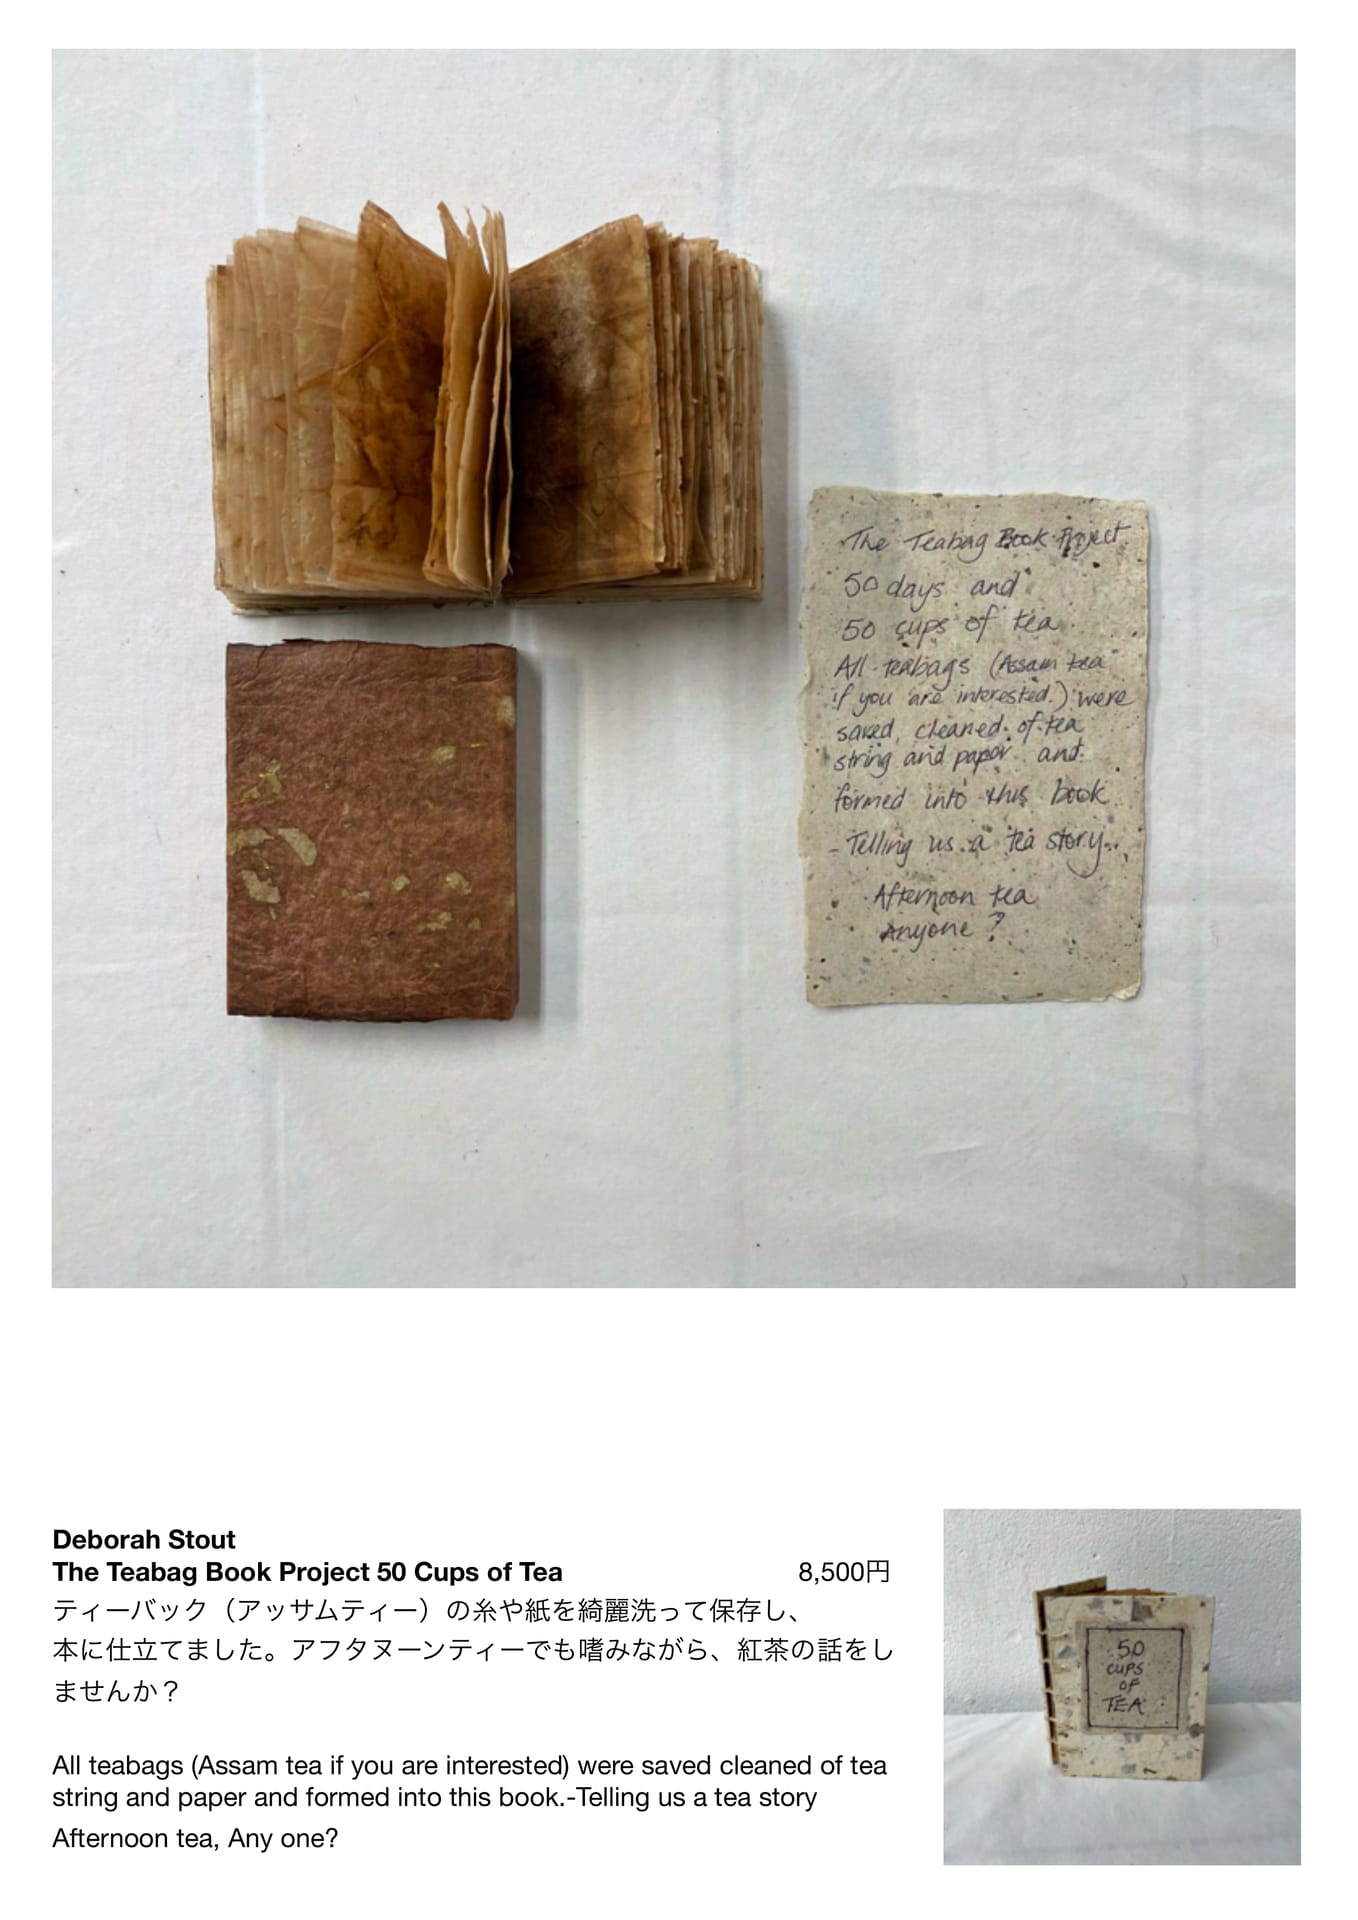 The Teabag Book Project.
50 days and
50 cups of tea.
All teabags (Assam tea
if you are interested.) were
saved, cleaned of tea
string and paper and
formed into this book
- Telling us a tea story..
Afternoon tea
Anyone ?
Deborah Stout
The Teabag Book Project 50 Cups of Tea 8,500円
ティーバック（アッサムティー）の糸や紙を綺麗洗って保存し、
本に仕立てました。アフタヌーンティーでも嗜みながら、紅茶の話をし
ませんか？
All teabags (Assam tea if you are interested) were saved cleaned of tea
string and paper and formed into this book.-Telling us a tea story
Afternoon tea, Any one?
50
CUPS
OF
TEA